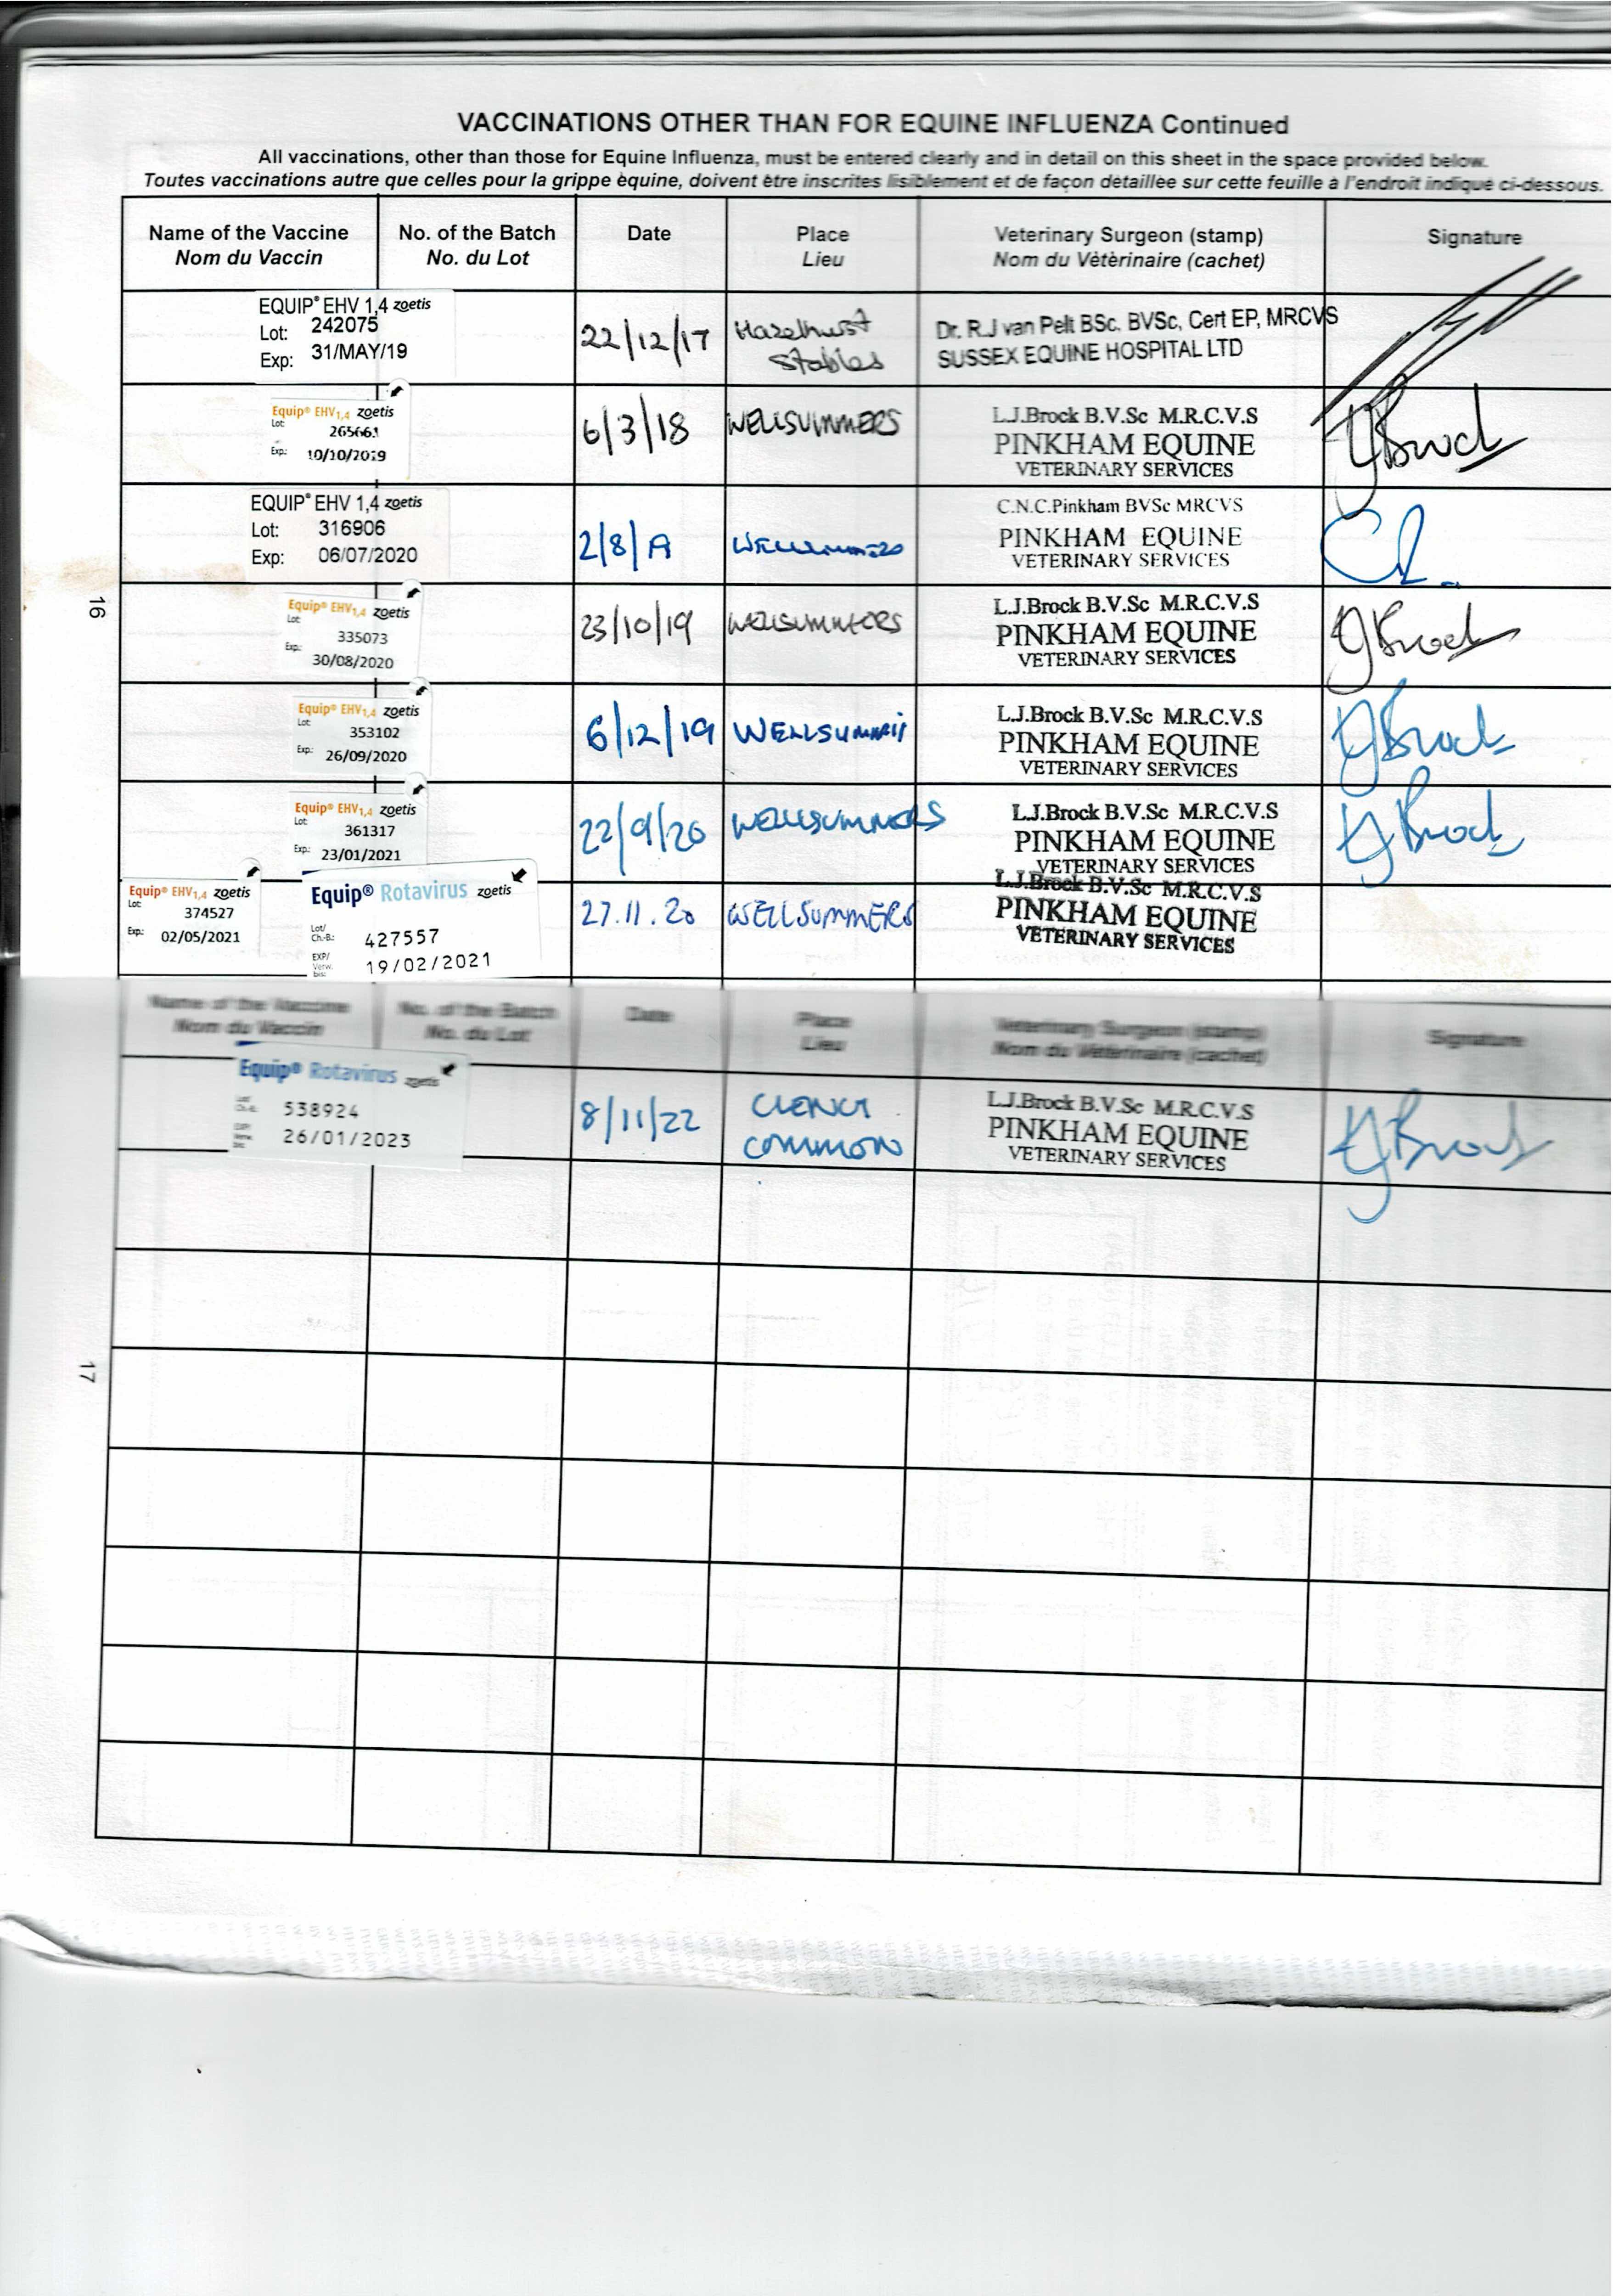 VACCINATIONS OTHER THAN FOR EQUINE INFLUENZA Continued
All vaccinations, other than those for Equine Influenza, must be entered clearly and in detail on this sheet in the space provided below.
Toutes vaccinations autre que celles pour la grippe èquine, doivent ètre inscrites lisiblement et de façon dètaillèe sur cette feuille à l'endroit indiquè ci-dessous.
Name of the Vaccine No. of the Batch Date Place Veterinary Surgeon (stamp) Signature
Nom du Vaccin No. du Lot Lieu Nom du Vètèrinaire (cachet)
EQUIP® EHV 1,4 zoetis
Lot: 242075
Exp: 31/MAY/19
22/12/17
Hazelhurst
Stables
Dr. R.J van Pelt BSc. BVSc, Cert EP, MRCVS
SUSSEX EQUINE HOSPITAL LTD
Equip® EHV1,4 zoetis
Lot: 265661
Exp: 10/10/2019
6/3/18
WELLSUMMERS
L.J.Brock B.V.Sc M.R.C.V.S
PINKHAM EQUINE
VETERINARY SERVICES
LJBrock
EQUIP® EHV 1,4 zoetis
Lot: 316906
Exp: 06/07/2020
2/8/19
WELLSUMMERS
C.N.C.Pinkham BVSc MRCVS
PINKHAM EQUINE
VETERINARY SERVICES
16
Equip® EHV1,4 zoetis
Lot: 335073
Exp: 30/08/2020
23/10/19
WELLSUMMERS
L.J.Brock B.V.Sc M.R.C.V.S
PINKHAM EQUINE
VETERINARY SERVICES
LJBrock
Equip® EHV1,4 zoetis
Lot: 353102
Exp.: 26/09/2020
6/12/19
WELLSUMMERS
L.J.Brock B.V.Sc M.R.C.V.S
PINKHAM EQUINE
VETERINARY SERVICES
LJBrock
Equip® EHV1,4 zoetis
Lot: 361317
Exp.: 23/01/2021
22/9/20
WELLSUMMERS
L.J.Brock B.V.Sc M.R.C.V.S
PINKHAM EQUINE
VETERINARY SERVICES
LJBrock
Equip® EHV1,4 zoetis
Lot: 374527
Exp.: 02/05/2021
Equip® Rotavirus zoetis
Lot/
Ch.-B.: 427557
EXP/
Verw.
bis: 19/02/2021
27.11.20
WELLSUMMERS
L.J.Brock B.V.Sc M.R.C.V.S
PINKHAM EQUINE
VETERINARY SERVICES
Name of the Vaccine No. of the Batch Date Place Veterinary Surgeon (stamp) Signature
Nom du Vaccin No. du Lot Lieu Nom du Vètèrinaire (cachet)
Equip® Rotavirus zoetis
538924
26/01/2023
8/11/22
COMMON
L.J.Brock B.V.Sc M.R.C.V.S
PINKHAM EQUINE
VETERINARY SERVICES
LJBrock
17